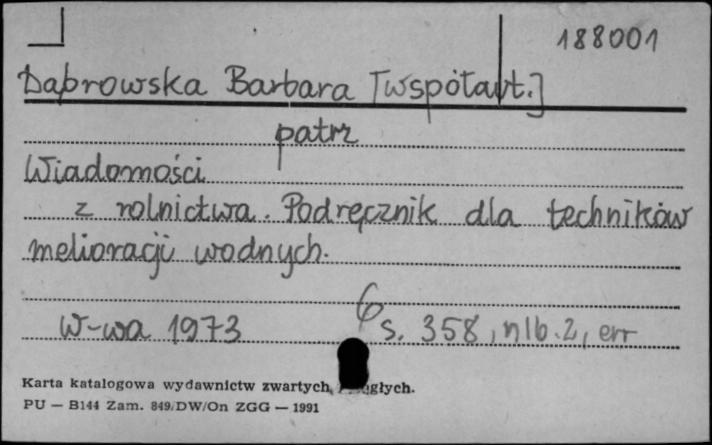 188001
Dąbrowska Barbara [współaut.]
patrz
Wiadomości
z rolnictwa. Podręcznik dla techników
melioracji wodnych.
W-wa 1973 s. 358, nlb. 2, err
Karta katalogowa wydawnictw zwartych
PU — B144 Zam. 849/DW/On ZGG — 1991